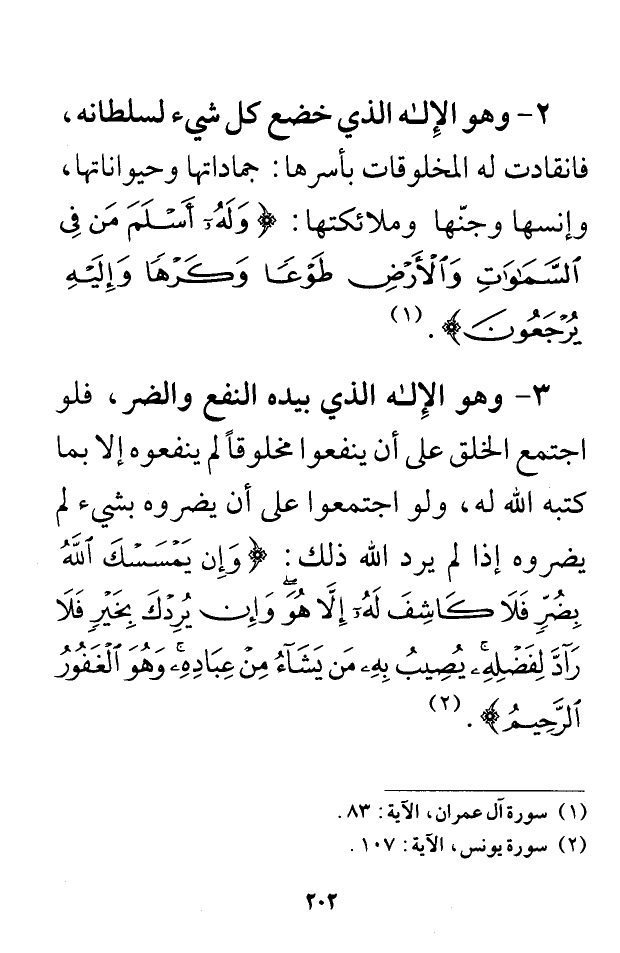 ٢- وهو الإِلـٰه الذي خضع كل شيء لسلطانه،
فانقادت له المخلوقات بأسرها: جماداتها وحيواناتها،
وإنسها وجنّها وملائكتها: ﴿وَلَهُۥٓ أَسْلَمَ مَن فِى
ٱلسَّمَـٰوَٰتِ وَٱلْأَرْضِ طَوْعًا وَكَرْهًا وَإِلَيْهِ
يُرْجَعُونَ﴾. (١)
٣- وهو الإِلـٰه الذي بيده النفع والضر، فلو
اجتمع الخلق على أن ينفعوا مخلوقاً لم ينفعوه إلا بما
كتبه الله له، ولو اجتمعوا على أن يضروه بشيء لم
يضروه إذا لم يرد الله ذلك: ﴿وَإِن يَمْسَسْكَ ٱللَّهُ
بِضُرٍّ فَلَا كَاشِفَ لَهُۥٓ إِلَّا هُوَ ۖ وَإِن يُرِدْكَ بِخَيْرٍ فَلَا
رَآدَّ لِفَضْلِهِۦ ۚ يُصِيبُ بِهِۦ مَن يَشَآءُ مِنْ عِبَادِهِۦ ۚ وَهُوَ ٱلْغَفُورُ
ٱلرَّحِيمُ﴾. (٢)
(١) سورة آل عمران، الآية: ٨٣.
(٢) سورة يونس، الآية: ١٠٧.
٢٠٢